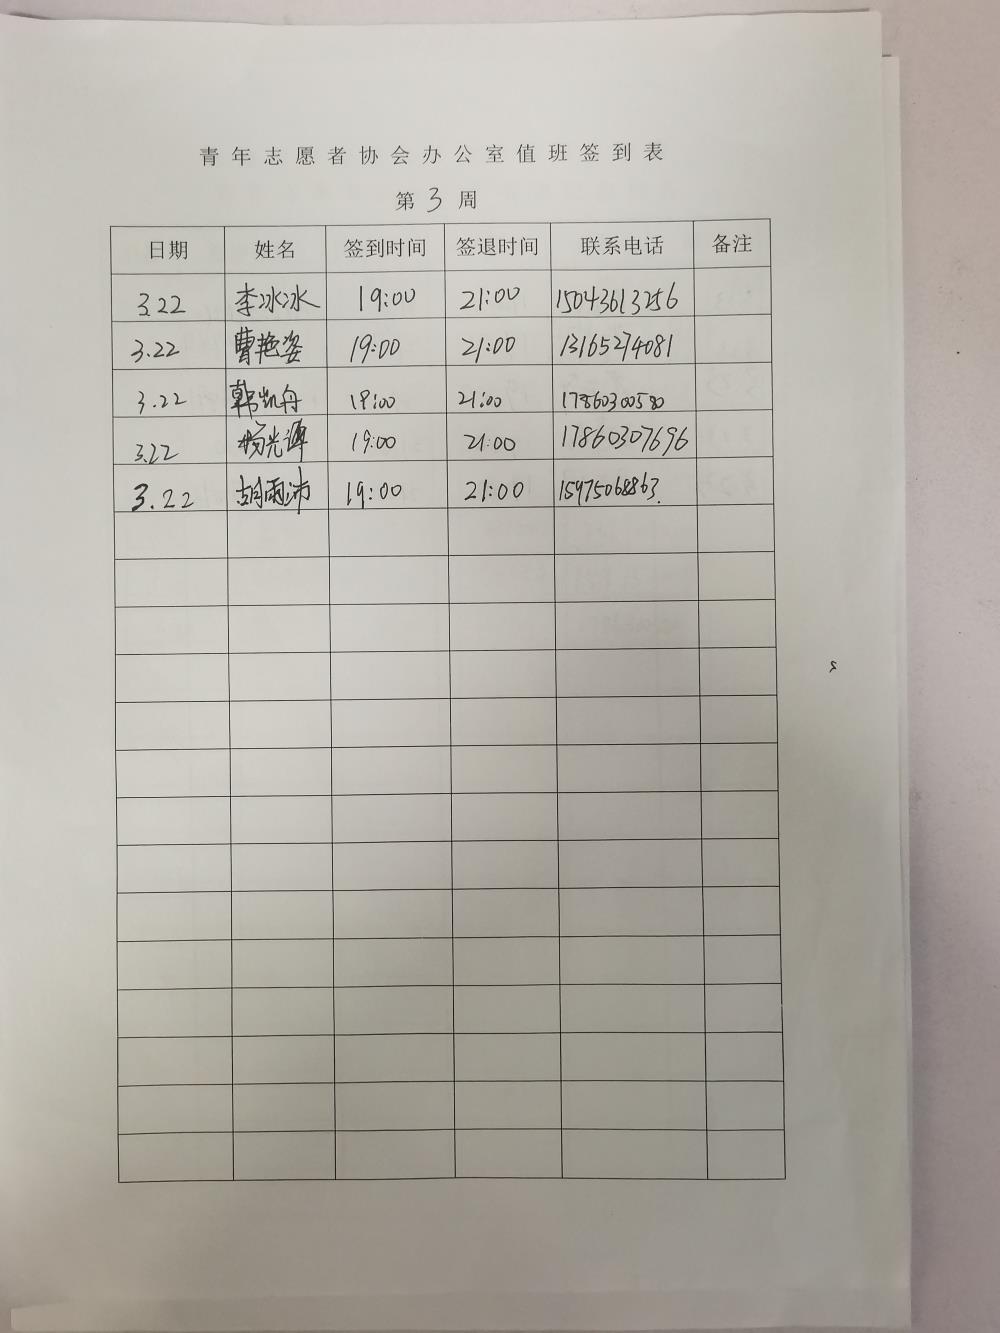 青年志愿者协会办公室值班签到表
第3周
日期 姓名 签到时间 签退时间 联系电话 备注
3.22 李冰冰 19:00 21:00 15043613256
3.22 曹艳姿 19:00 21:00 13165274081
3.22 韩凯舟 19:00 21:00 17860300580
3.22 杨光谭 19:00 21:00 17860307696
3.22 胡雨沛 19:00 21:00 15975068863